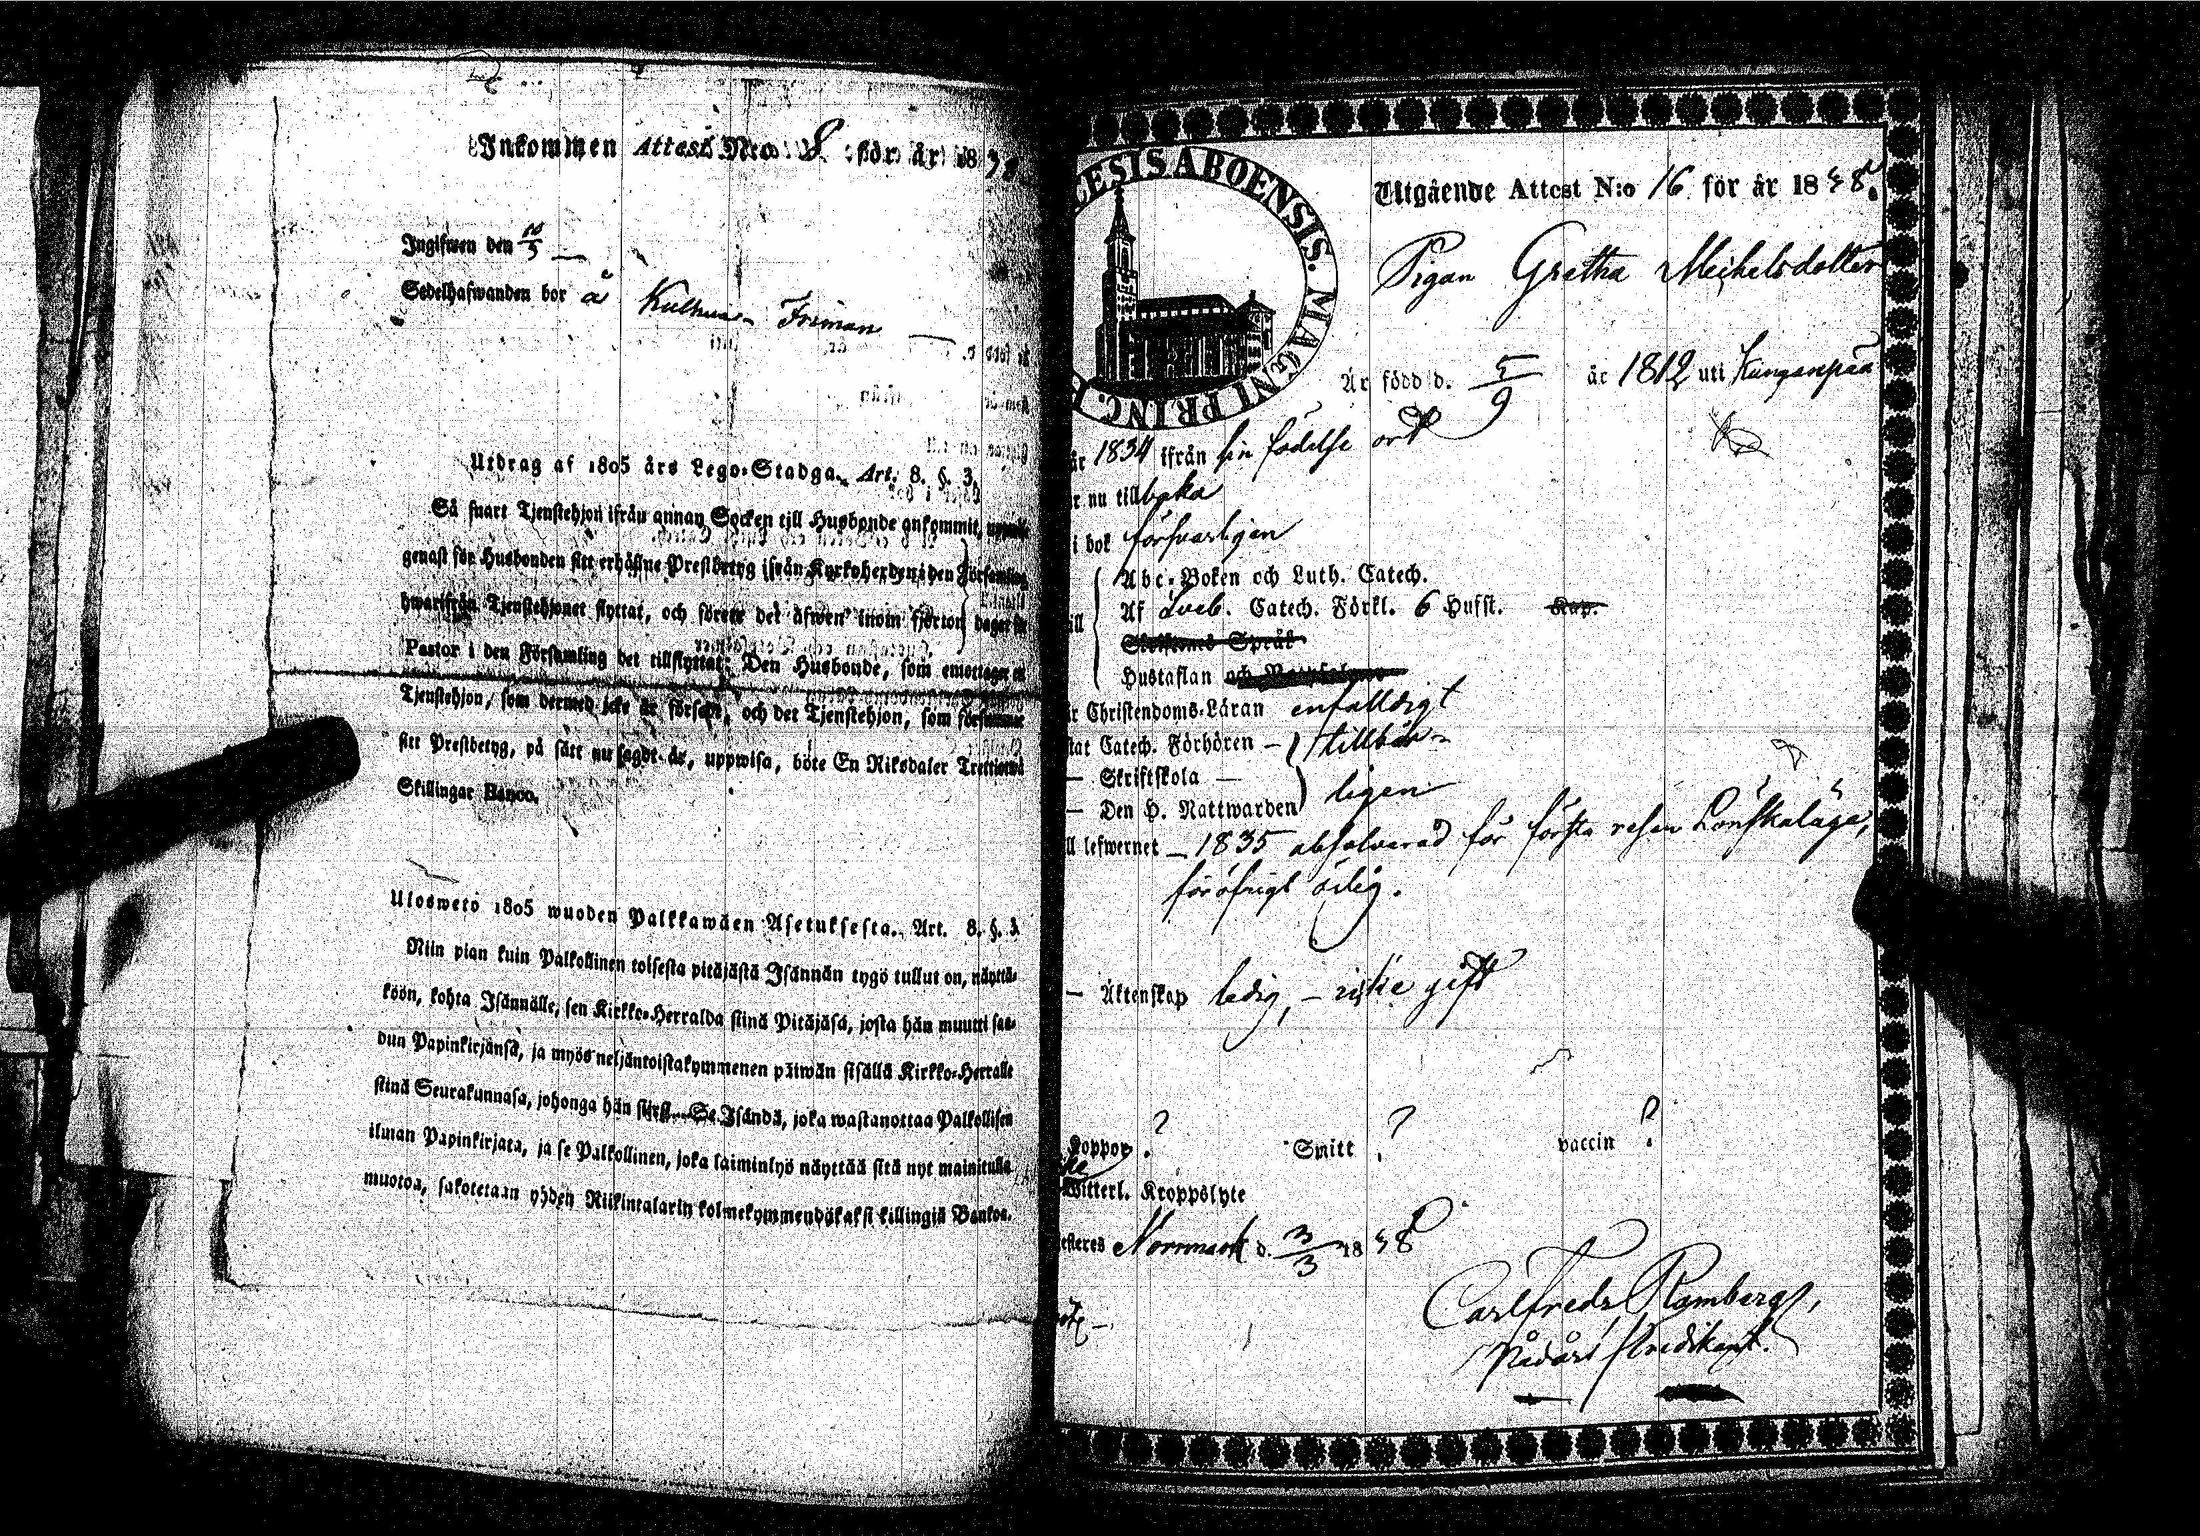 Inkommen Attest N:o 8 för år 1838
Ingifwen den 10/5
Sedelhafwanden bor å Kulhua - Friman
Utdrag af 1805 års Lego-Stadga. Art. 8. §. 3.
Så snart Tjenstehjon ifrån annan Socken till Husbonde ankommit,
genast för Husbonden sitt erhållne Prestbetyg ifrån Kyrkoherden i den Församling
hwarifrån Tjenstehjonet flyttat, och förete det äfwen inom fjorton dagar för
Pastor i den Församling det tillflyttat; Den Husbonde, som emottager et
Tjenstehjon, som dermed icke är försedt, och det Tjenstehjon, som försummar
sitt Prestbetyg, på sätt nu sagdt är, uppwisa, böte En Riksdaler Trettiotwå
Skillingar Banco.
Uloswetö 1805 wuoden Palkkawäen Asetuksesta. Art. 8. §. 3.
Niin pian kuin Palkollinen toisesta pitäjästä Isännän tygö tullut on, näyttä-
köön, kohta Isännälle, sen Kirkko-Herralda siinä Pitäjäsä, josta hän muutti saa-
dun Papinkirjansa, ja myös neljäntoistakymmenen päiwän sisällä Kirkko-Herralle
siinä Seurakunnasa, johonga hän siirsi. Se Isändä, joka wastanottaa Palkollisen
ilman Papinkirjata, ja se Palkollinen, joka laiminlyö näyttää sitä nyt mainitulla
muotoa, sakotetaan yhden Riikintalarin kolmekymmendäkaksi killingiä Bankoa.
CESIS ABOENSIS. MAGNI PRINC. F
Utgående Attest N:o 16 för år 1838.
Pigan Gretha Meihelsdotter
Är född d. 5/9 år 1812 uti Kunganpää
år 1834 ifrån sin födelse ort
r nu tillbaka
i bok försvarligen
Abc-Boken och Luth. Catech.
Af Sveb. Catech. Förkl. 6 Hufst. Kap.
ill
Skriftenes Språk
Hustaflan och
r Christendoms-Läran enfalldigt
tat Catech. Förhören – tillbör-
— Skriftskola —
— Den H. Nattwarden ligen
ll lefwernet – 1835 absolverad för första resan Lönskaläge,
föröfrigt ärlig.
— Äktenskap ledig, – icke gift
Koppor ? Smitt ? vaccin ?
Witterl. Kroppslyte
esteres Norrmark d. 3/3 1838
Carl Fredr Ramberg,
Nådårs Predikant.